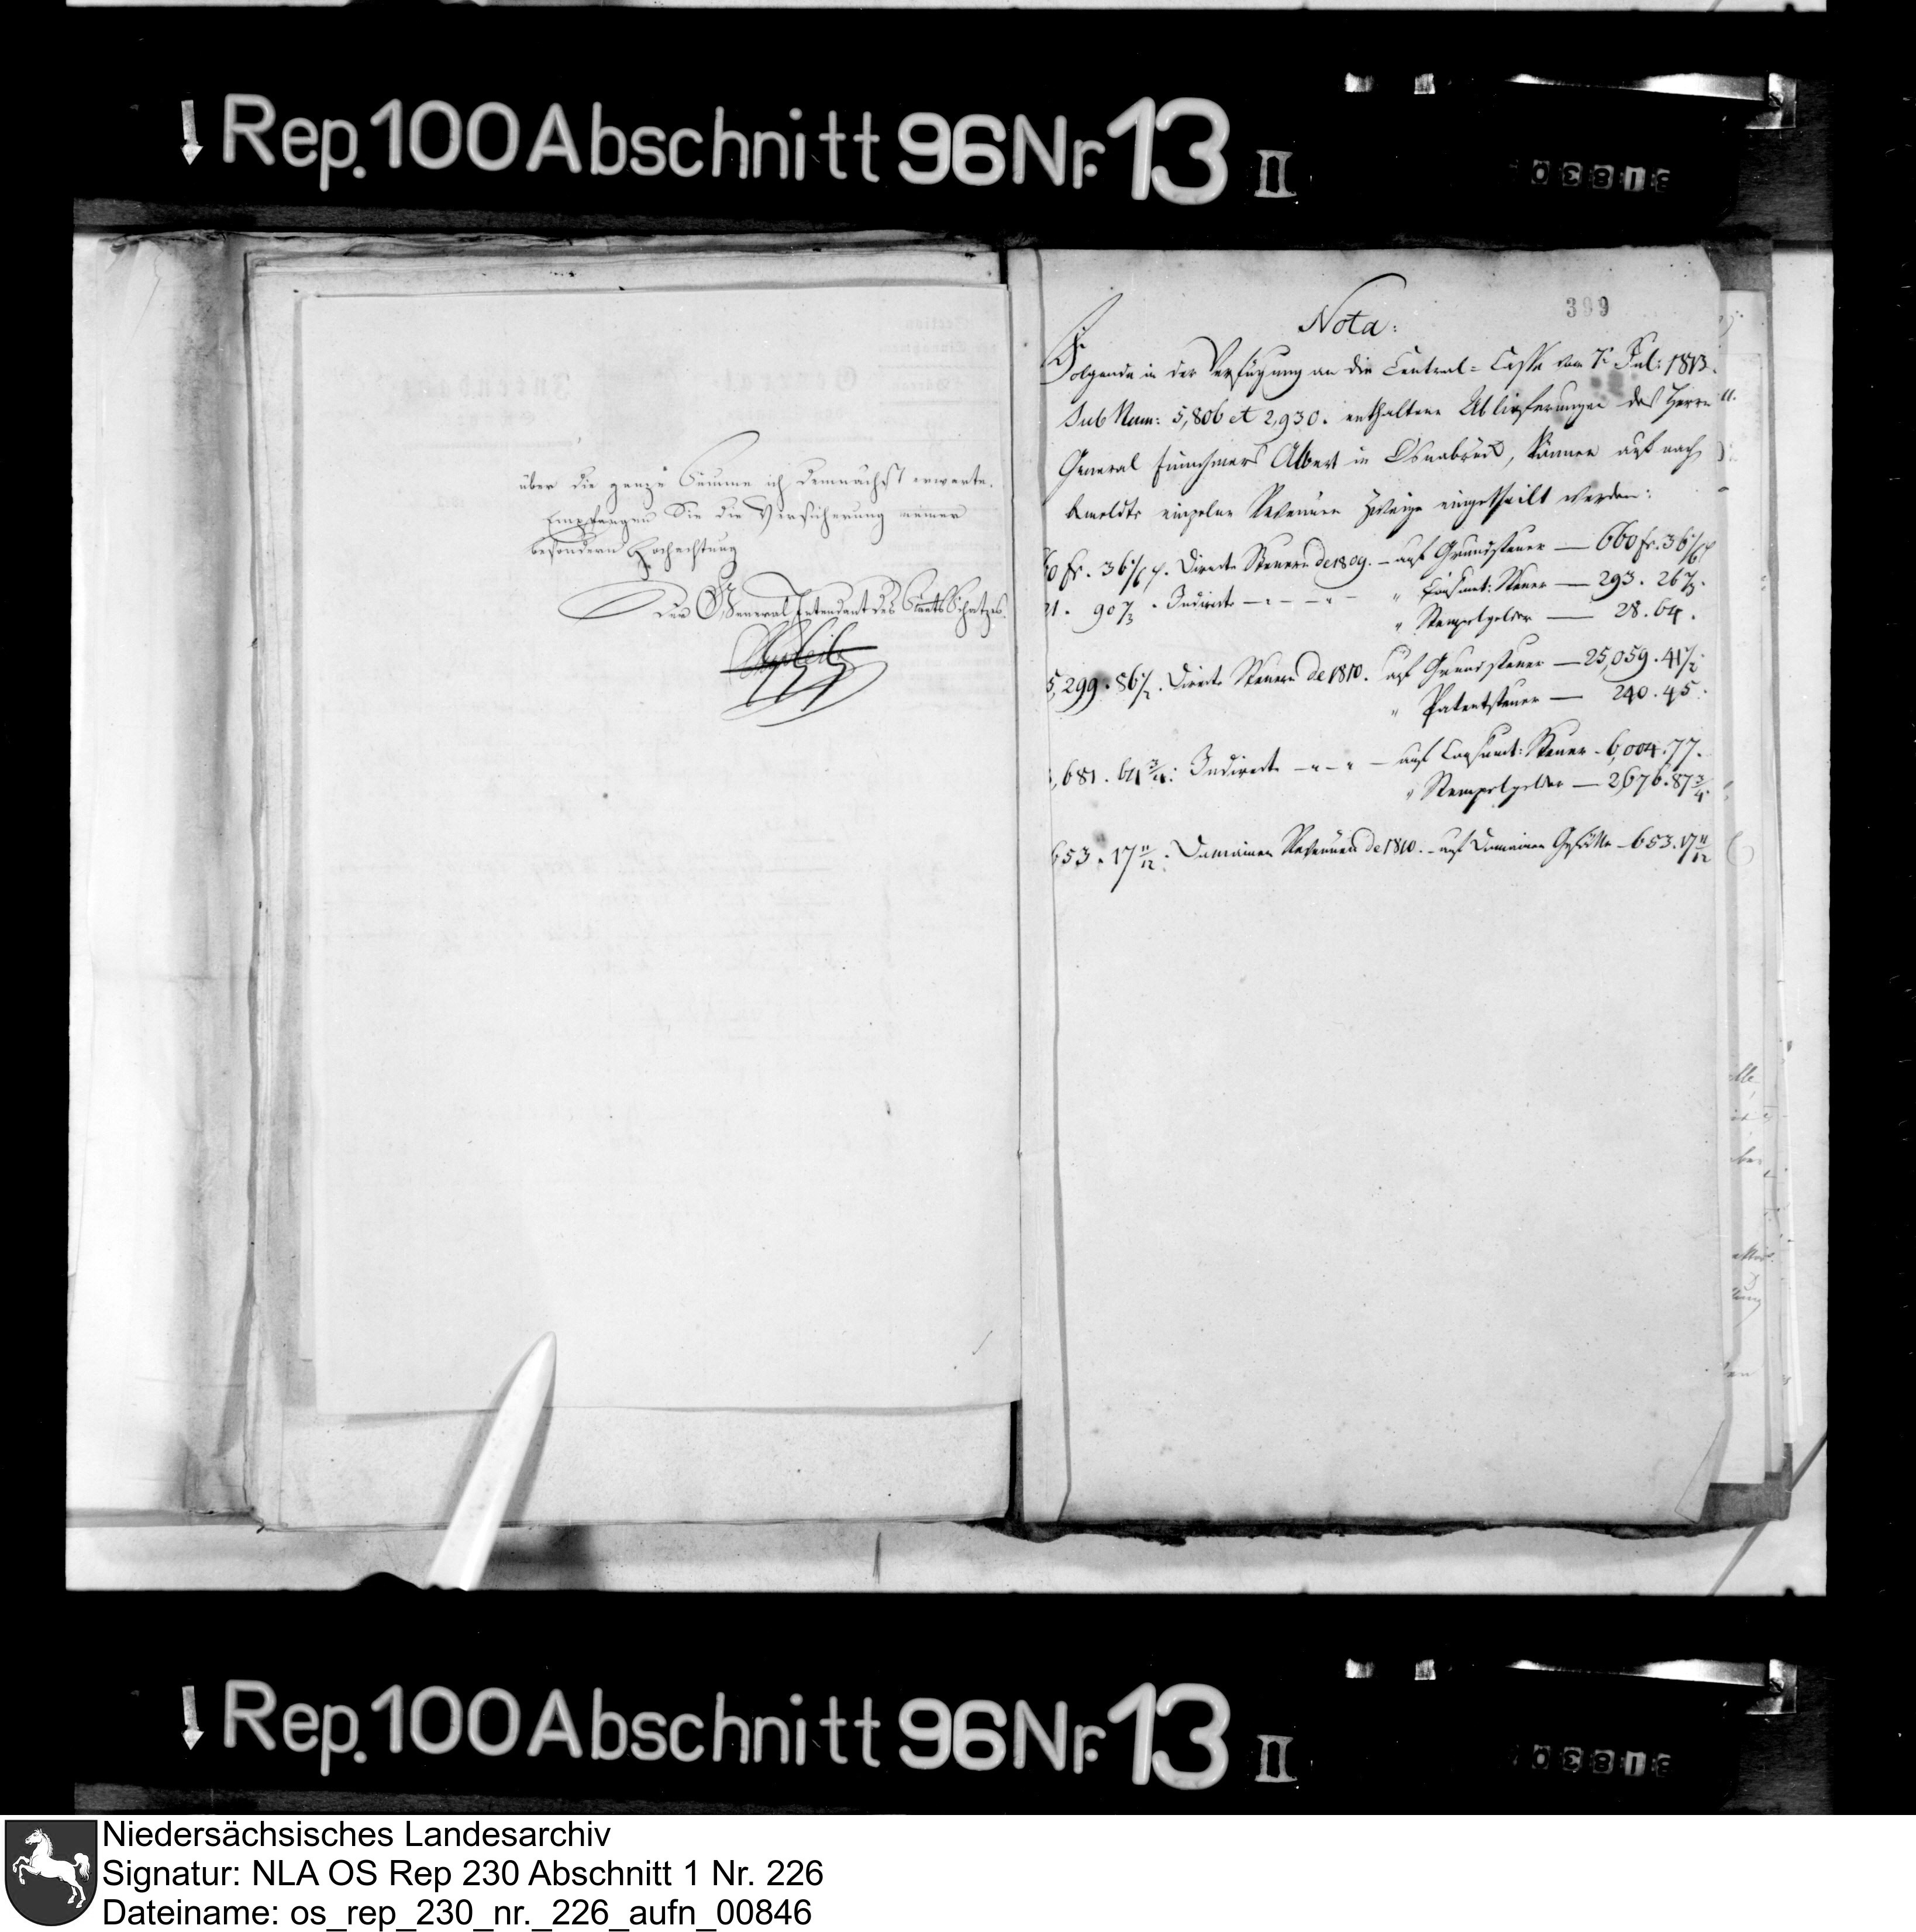 Rep. 100 Abschnitt 96 Nr. 13 II
über die ganze Summe ich demnächst erwarte.
Empfangen Sie die Versicherung meiner
besondern Hochachtung
Der General Intendant des Staats Schatzes.
399
Nota:
Folgende in der Verfügung an die Central-Casse vom 7. Jul: 1813.
sub Num: 5,806 et 2,930. enthaltene Ablieferungen des Herrn
General Einnehmers Albert in Osnabrück, können auf nach
einzelne Revenüen Zweige eingetheilt werden:
0 fr. 36 Directe Steuern de 1809. — auf Grundsteuer — 660 fr. 36
21. 90 Indirecte — " — " — " Consumt: Steuer — 293. 26
" Stempelgelder — 28. 64.
5,299. 86 1/2. Directe Steuern de 1810. auf Grundsteuer — 25,059. 41 1/2.
" Patentsteuer — 240. 45.
,681. 64 3/4. Indirecte — " — " — auf Consumt: Steuer — 6,004. 77.
" Stempelgelder — 2,676. 87 3/4.
653. 17 11/12. Domainen Revenüen de 1810. — auf Domainen Gefälle — 653. 17 11/12
Rep. 100 Abschnitt 96 Nr. 13 II
Niedersächsisches Landesarchiv
Signatur: NLA OS Rep 230 Abschnitt 1 Nr. 226
Dateiname: os_rep_230_nr._226_aufn_00846